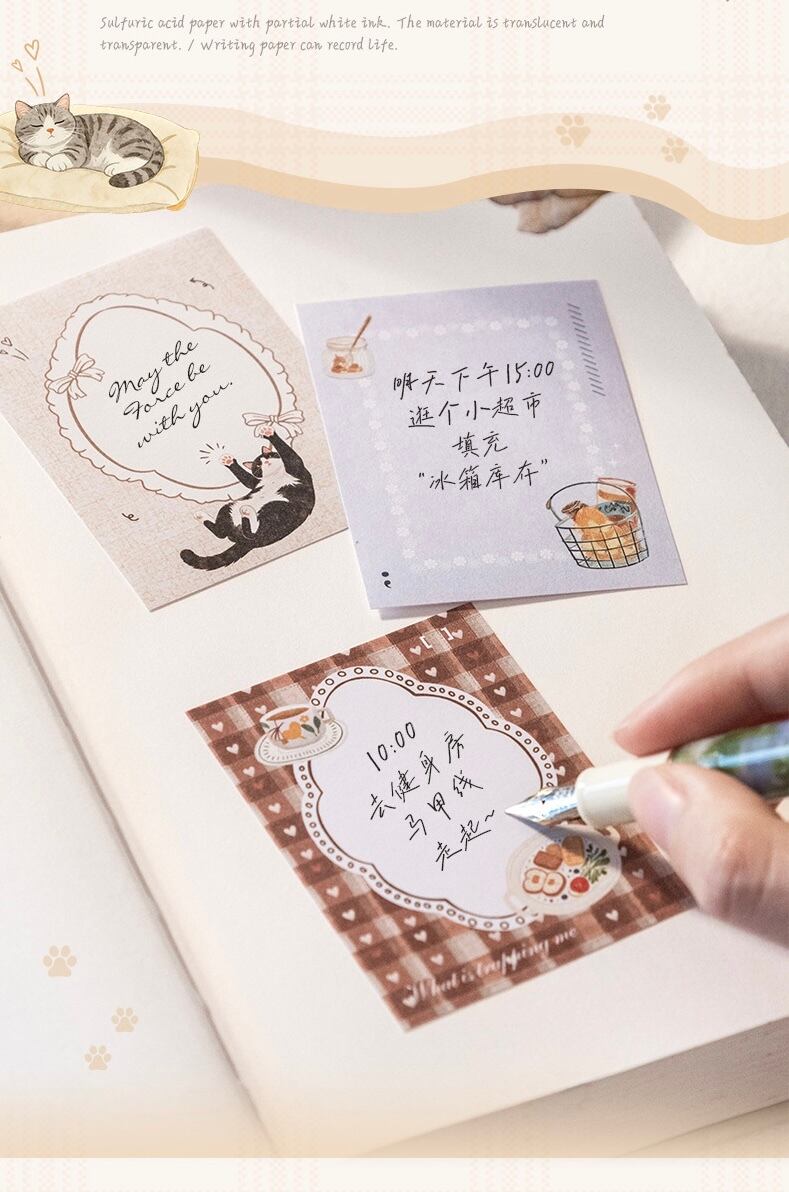 Sulfuric acid paper with partial white ink. The material is translucent and
transparent. / Writing paper can record life.
May the
Force be
with you.
明天下午15:00
逛个小超市
填充
“冰箱库存”
10:00
去健身房
马甲线
走起~
What is trapping me